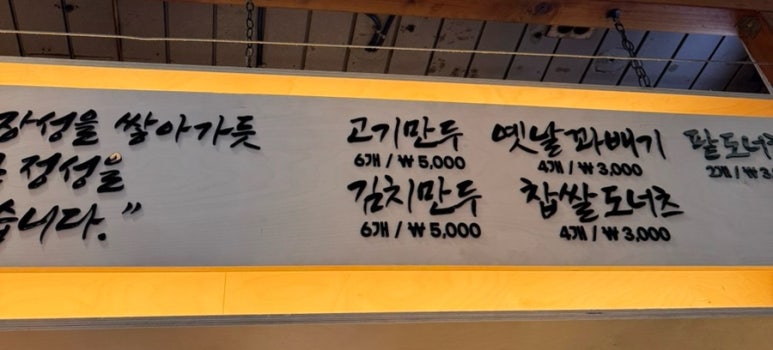 장성을 쌓아가듯
정성을
습니다."
고기만두
6개 / ₩ 5,000
김치만두
6개 / ₩ 5,000
옛날꽈배기
4개 / ₩ 3,000
찹쌀도너츠
4개 / ₩ 3,000
팥도너츠
2개 / ₩